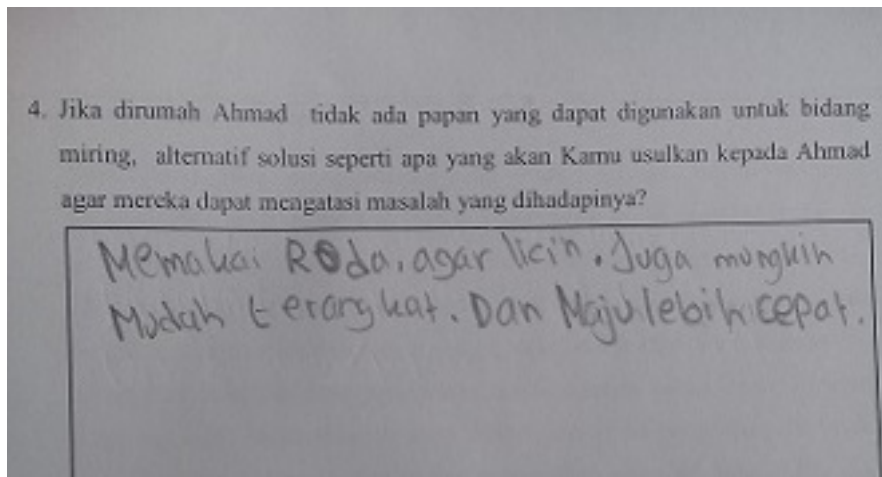 4. Jika dirumah Ahmad tidak ada papan yang dapat digunakan untuk bidang
miring, alternatif solusi seperti apa yang akan Kamu usulkan kepada Ahmad
agar mereka dapat mengatasi masalah yang dihadapinya?
Memakai Roda, agar licin. Juga mungkin
Mudah terangkat. Dan Maju lebih cepat.